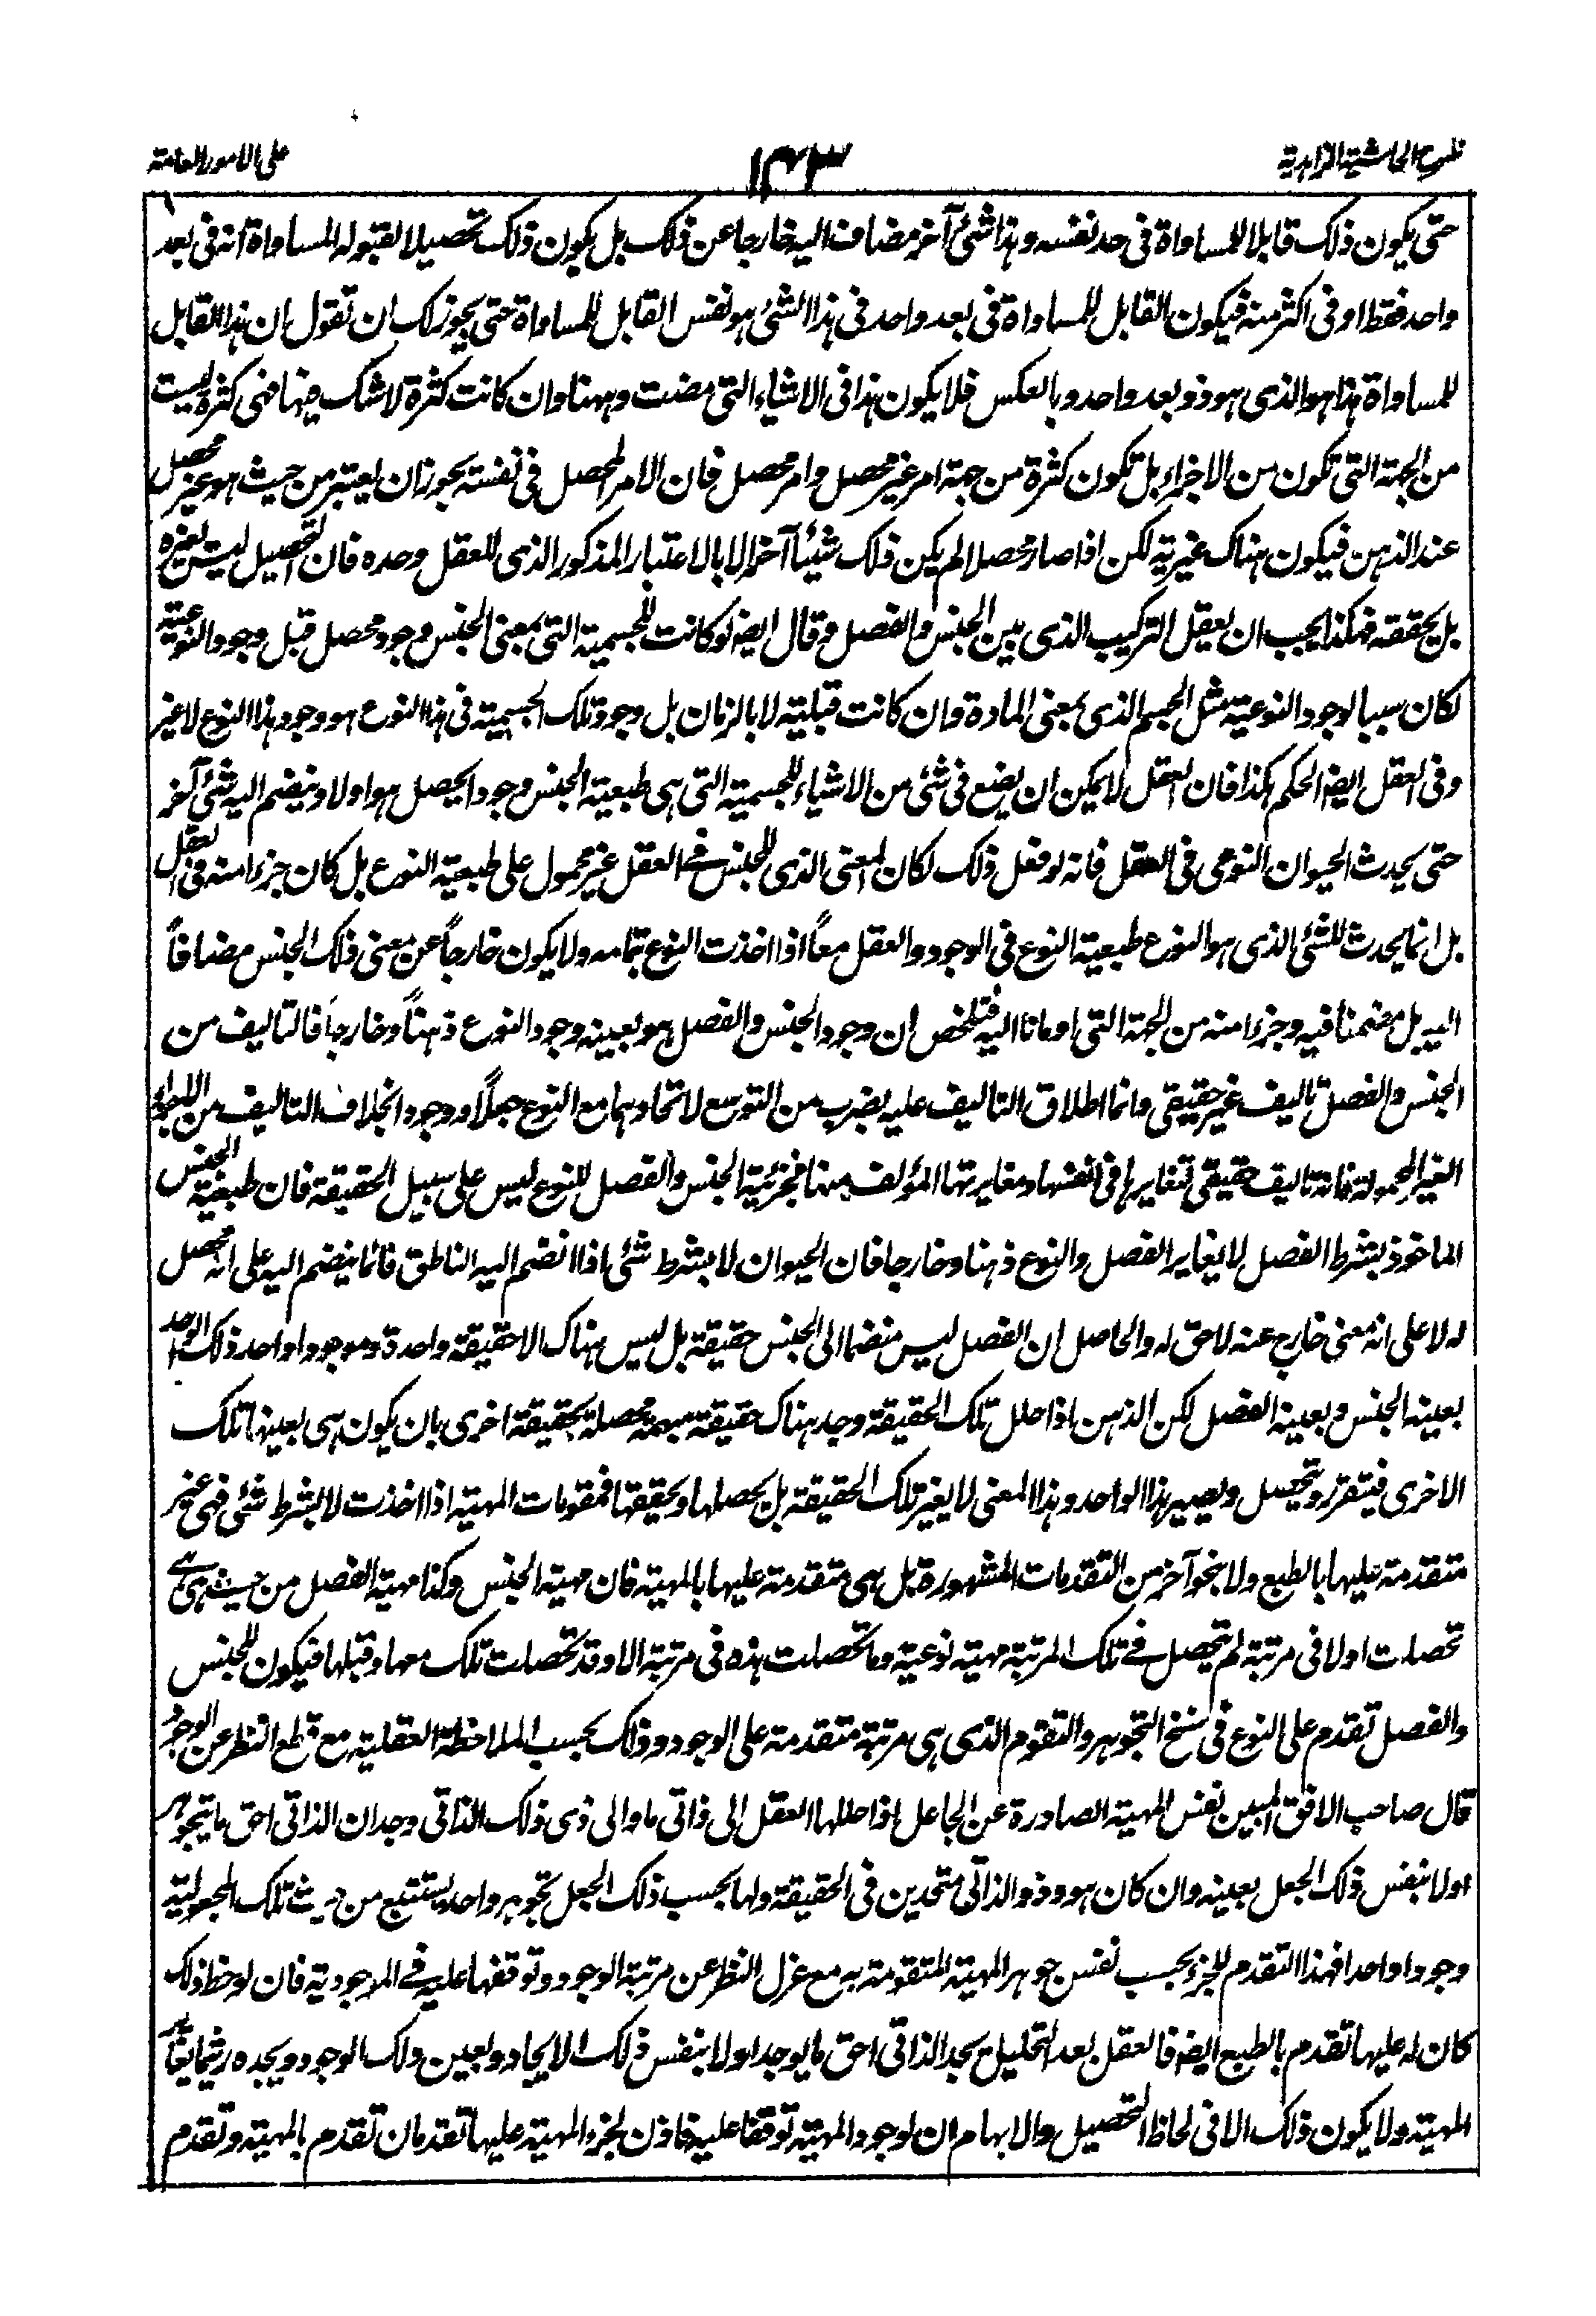 شرح الحاشية الزاهدية
١٤٣
على الامور العامة
حتى يكون ذلك قابلا للمساواة فى حد نفسه وهذا شئ آخر مضاف اليه خارجا عن ذلك بل يكون ذلك تحصيلا لقبوله المساواة انه فى بعد
واحد فقط او فى اكثر منه فيكون القابل للمساواة فى بعد واحد فى هذا الشئ هو نفس القابل للمساواة حتى يجوز لك ان تقول ان هذا القابل
للمساواة هذا هو الذى هو ذو بعد واحد وبالعكس فلا يكون هذا فى الاشياء التى مضت وههنا وان كانت كثرة لا شك فيها فهى كثرة ليست
من الجهة التى تكون من الاجزاء بل تكون كثرة من جهة امر غير محصل وامر محصل فان الامر المحصل فى نفسه يجوز ان يعتبر من حيث هو غير محصل
عند الذهن فيكون هناك غيرية لكن اذا صار محصلا لم يكن ذلك شيئا آخر الا بالاعتبار المذكور الذى للعقل وحده فان التحصيل ليس يغيره
بل يحققه فهكذا يجب ان يعقل التركيب الذى بين الجنس والفصل وقال ايضا لو كانت للجسمية التى بمعنى الجنس وجود محصل قبل وجود النوعية
لكان سببا لوجود النوعية مثل الجسم الذى بمعنى المادة وان كانت قبلية لا بالزمان بل وجود تلك الجسمية فى هذا النوع هو وجود هذا النوع لا غير
وفى العقل ايضا الحكم هكذا فان العقل لا يمكن ان يضع فى شئ من الاشياء للجسمية التى هى طبيعة الجنس وجودا يحصل هو اولا وينضم اليه شئ آخر
حتى يحدث الحيوان النوعى فى العقل فانه لو فعل ذلك لكان المعنى الذى للجنس فى العقل غير محمول على طبيعة النوع بل كان جزءا منه فى العقل
بل انما يحدث للشئ الذى هو النوع طبيعة النوع فى الوجود والعقل معاً اذا اخذت النوع بتمامه ولا يكون خارجاً عن معنى ذلك الجنس مضافاً
اليه بل مضمنا فيه وجزءا منه من الجهة التى اومانا اليه فتلخص ان وجود الجنس والفصل هو بعينه وجود النوع ذهناً وخارجاً فالتاليف من
الجنس والفصل تاليف غير حقيقى وانما اطلاق التاليف عليه بضرب من التوسع لاتحادهما مع النوع جعلاً ووجودا بخلاف التاليف من الاجزاء
الغير المحمولة فانه تاليف حقيقى لتغايرها فى انفسها ومغايرتها المؤلف منها فجزئية الجنس والفصل للنوع ليس على سبيل الحقيقة فان طبيعة الجنس
الماخوذ بشرط الفصل لا يغاير الفصل والنوع ذهنا وخارجا فان الحيوان لا بشرط شئ اذا انضم اليه الناطق فانما ينضم اليه على انه محصل
له لا على انه معنى خارج عنه لاحق له والحاصل ان الفصل ليس منضما الى الجنس حقيقة بل ليس هناك الا حقيقة واحدة وموجودا واحد ذلك الواحد
بعينه الجنس وبعينه الفصل لكن الذهن اذا حلل تلك الحقيقة وجد هناك حقيقة مبهمة محصلة بحقيقة اخرى بان يكون هى بعينها تلك
الاخرى فيتقرر وتحصل ويصير هذا الواحد وهذا المعنى لا يغير تلك الحقيقة بل يحصلها ويحققها فمقومات المهية اذا اخذت لا بشرط شئ فهى غير
متقدمة عليها بالطبع ولا بنحو آخر من التقدمات المشهورة بل هى متقدمة عليها بالمهية فان مهية الجنس وكذا مهية الفصل من حيث هى هى
تحصلت اولا فى مرتبة لم تحصل فى تلك المرتبة مهية نوعية وما تحصلت هذه فى مرتبة الا وقد تحصلت تلك معها وقبلها فيكون للجنس
والفصل تقدم على النوع فى سنخ التجوهر والتقوم الذى هى مرتبة متقدمة على الوجود وذلك بحسب الملاحظة العقلية مع قطع النظر عن الوجود
قال صاحب الافق المبين نفس المهية الصادرة عن الجاعل اذا حللها العقل الى ذاتى ما والى ذى ذلك الذاتى وجد ان الذاتى احق ما يتجوهر
اولا بنفس ذلك الجعل بعينه وان كان هو وذو الذاتى متحدين فى الحقيقة ولها بحسب ذلك الجعل تجوهر واحد يستتبع من حيث تلك المجعولية
وجودا واحدا فهذا التقدم للجزء بحسب نفس جوهر المهية المتقومة به مع عزل النظر عن مرتبة الوجود وتوقفها عليه فى الموجودية فان لوحظ ذلك
كان له عليها تقدم بالطبع ايضا فالعقل بعد التحليل يجد الذاتى احق ما يوجد اولا بنفس ذلك الايجاد وبعين ذلك الوجود ويجده
المهية ولا يكون ذلك الا فى لحاظ التحصيل والابهام ان لوجود المهية توقفا عليه فاذن لجزء المهية عليها تقدمان تقدم بالمهية وتقدم